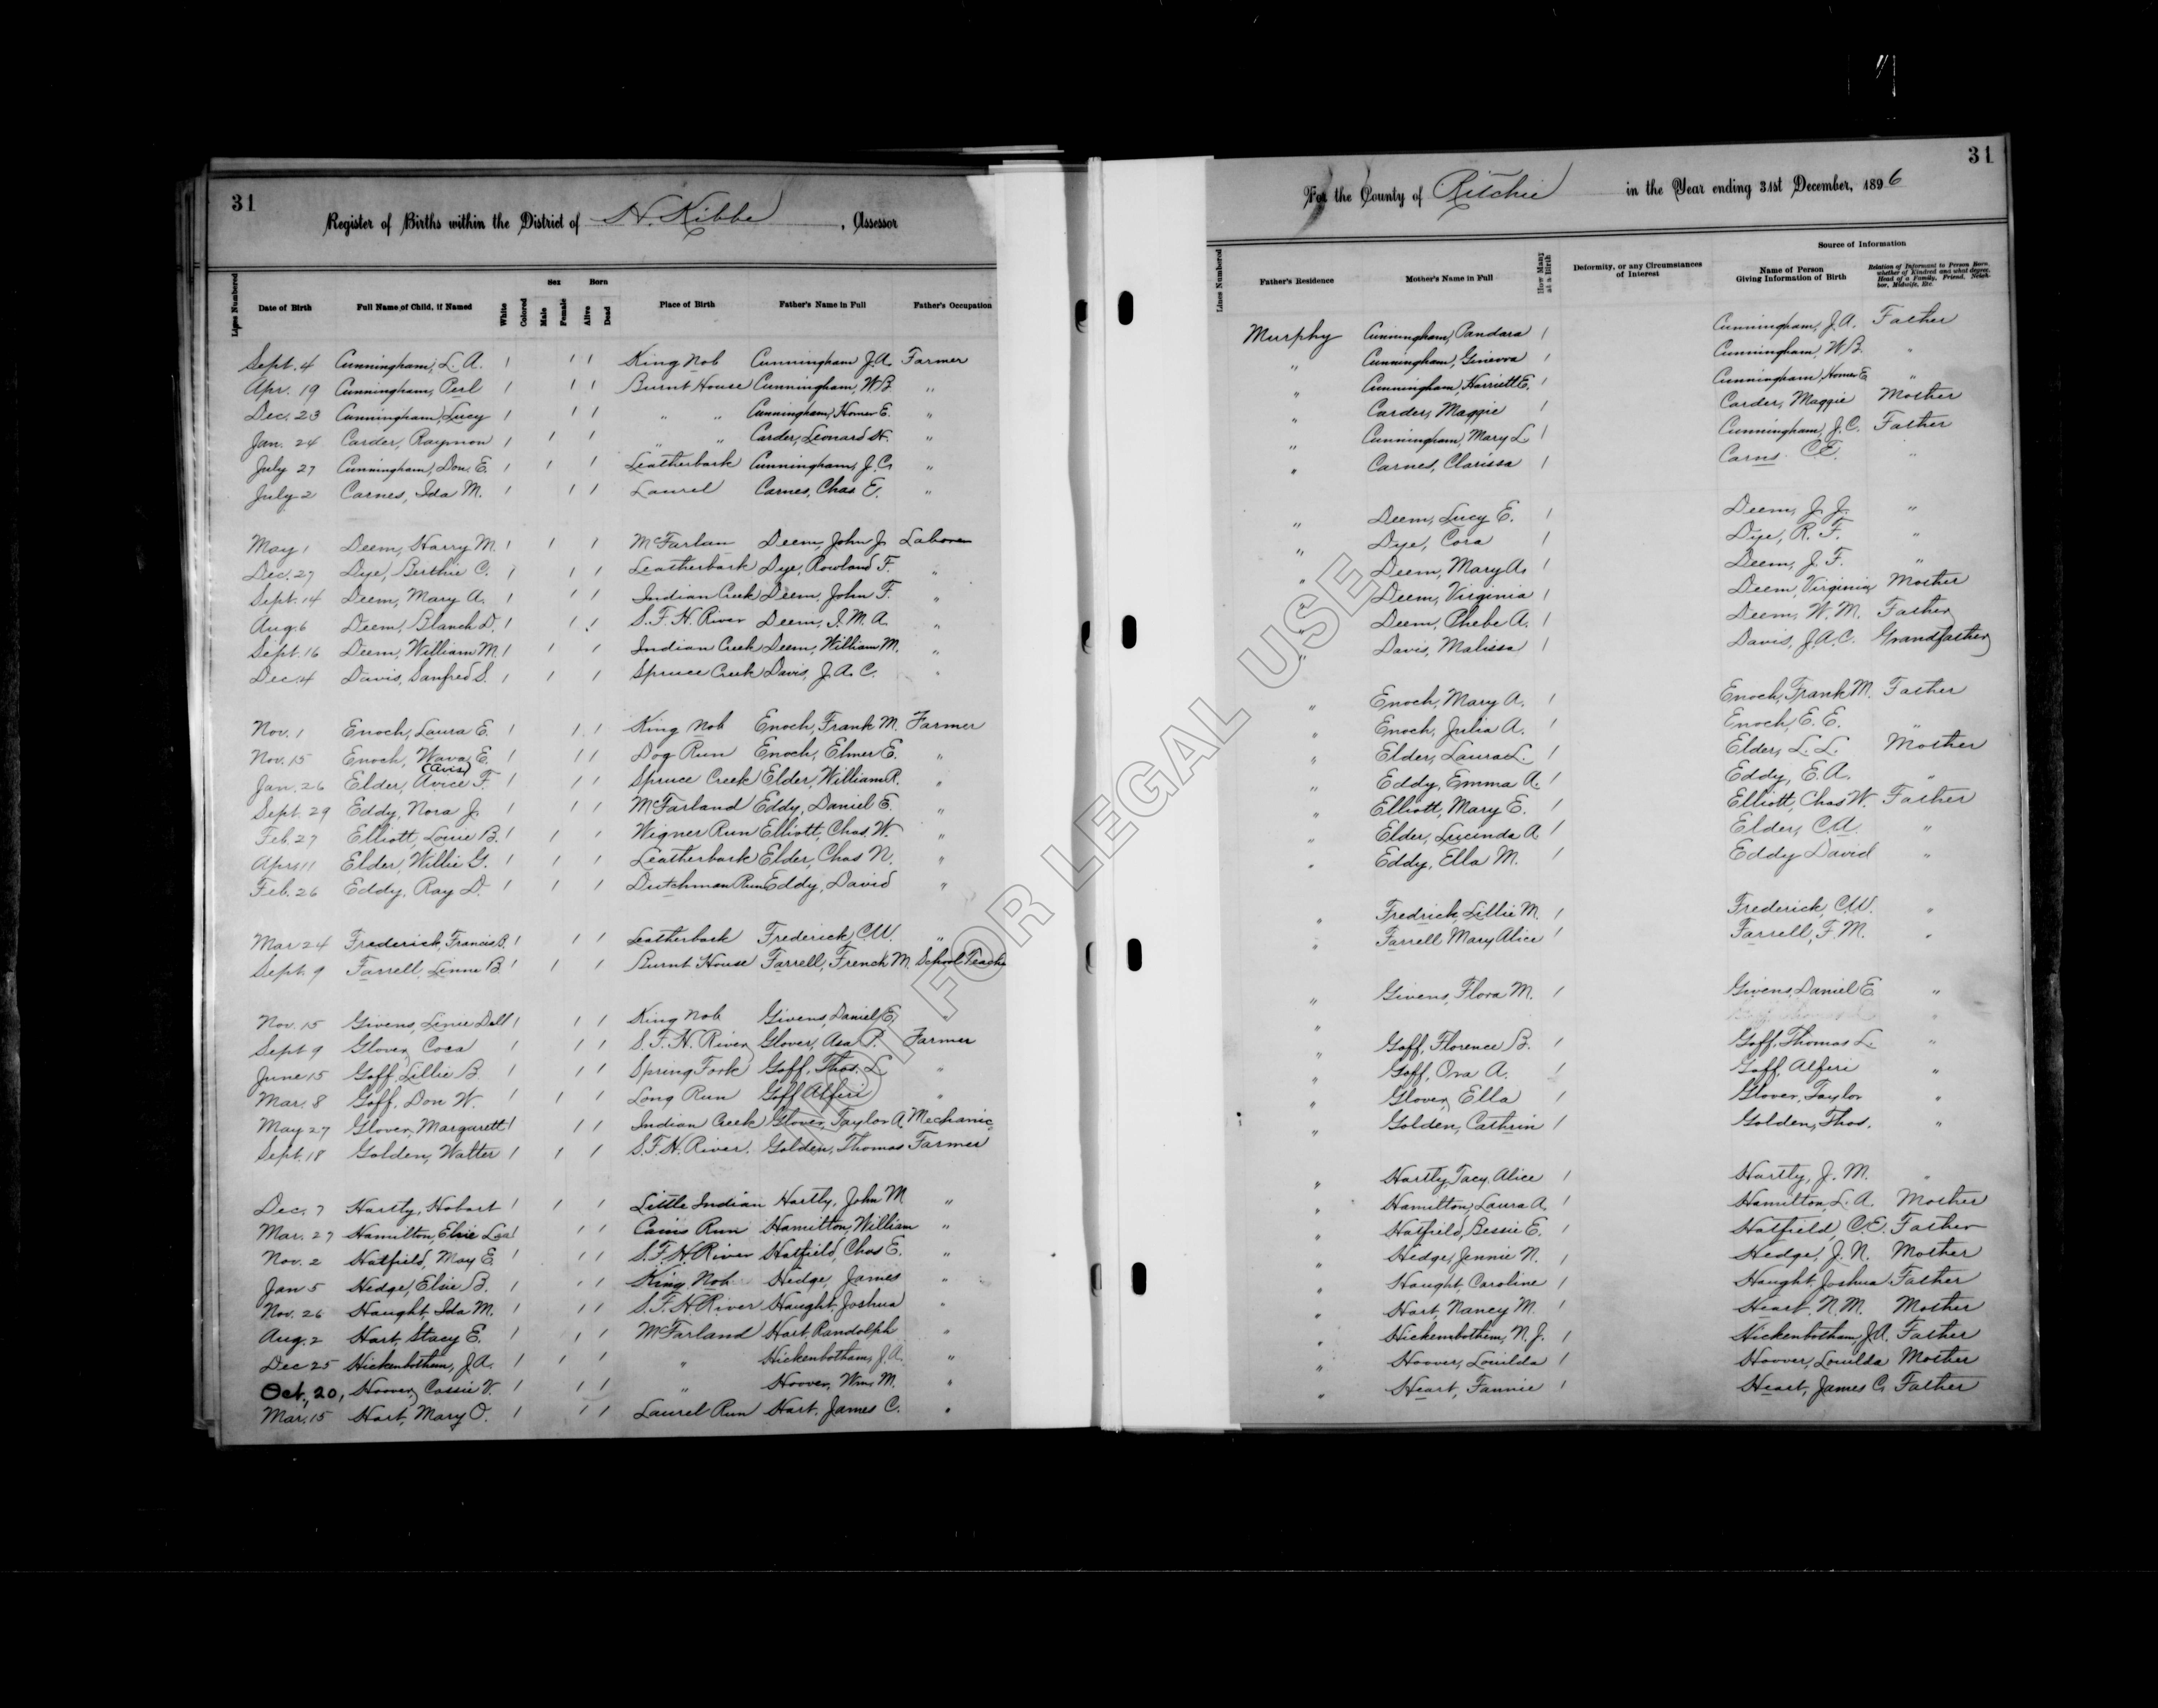 31
Register of Births within the District of H. Kibbe, Assessor
Lines Numbered Date of Birth Full Name of Child, if Named White Colored Sex Male Female Born Alive Dead Place of Birth Father's Name in Full Father's Occupation
Sept. 4 Cunningham, L. A. 1 1 1 King Nob Cunningham J.A. Farmer
Apr. 19 Cunningham, Perl 1 1 1 Burnt House Cunningham, W.B. "
Dec. 23 Cunningham, Lucy 1 1 1 " " Cunningham, Homer E. "
Jan. 24 Carder, Raymon 1 1 1 " " Carder, Leonard H. "
July 27 Cunningham, Don. E. 1 1 1 Leatherbark Cunningham, J.C. "
July 2 Carnes, Ida M. 1 1 1 Laurel Carnes, Chas E. "
May 1 Deem, Harry M. 1 1 1 McFarlan Deem, John J. Laborer
Dec. 27 Dye, Berthie C. 1 1 1 Leatherbark Dye, Rowland F. "
Sept. 14 Deem, Mary A. 1 1 1 Indian Creek Deem, John F. "
Aug. 6 Deem, Blanch D. 1 1 1 S.F.H. River Deem, J.M.A. "
Sept. 16 Deem, William M. 1 1 1 Indian Creek Deem, William M. "
Dec. 4 Davis, Sanfred S. 1 1 1 Spruce Creek Davis, J.A.C. "
Nov. 1 Enoch, Laura E. 1 1 1 King Nob Enoch, Frank M. Farmer
Nov. 15 Enoch, Wava E. 1 1 1 Dog Run Enoch, Elmer E. "
(Avis)
Jan. 26 Elder, Avice F. 1 1 1 Spruce Creek Elder, William R. "
Sept. 29 Eddy, Nora J. 1 1 1 McFarland Eddy, Daniel E. "
Feb. 27 Elliott, Louie B. 1 1 1 Wigner Run Elliott, Chas. W. "
Apr. 11 Elder, Willie G. 1 1 1 Leatherbark Elder, Chas N. "
Feb. 26 Eddy, Ray D. 1 1 1 Dutchman Run Eddy, David "
Mar 24 Frederick, Francis P. 1 1 1 Leatherbark Frederick, C.W. "
Sept. 9 Farrell, Linne B. 1 1 1 Burnt House Farrell, French M. School Teacher
Nov. 15 Givens, Linie Dell 1 1 1 King Nob Givens, Daniel E. "
Sept 9 Glover, Coca 1 1 1 S.F.H. River Glover, Asa P. Farmer
June 15 Goff, Lillie B. 1 1 1 Spring Fork Goff, Thos. L. "
Mar. 8 Goff, Don W. 1 1 1 Long Run Goff Alfiri "
May 27 Glover, Margarett 1 1 1 Indian Creek Glover, Taylor A. Mechanic
Sept. 18 Golden, Walter 1 1 1 S.F.H. River. Golden, Thomas Farmer
Dec. 7 Hartly, Hobart 1 1 1 Little Indian Hartly, John M. "
Mar. 27 Hamilton, Elsie 1 1 1 Cains Run Hamilton, William "
Nov. 2 Hatfield, May E. 1 1 1 S.F.H. River Hatfield, Chas E. "
Jan 5 Hedge, Elsie B. 1 1 1 King Nob Hedge, James "
Nov. 26 Haught, Ida M. 1 1 1 S.F.H River Haught, Joshua "
Aug. 2 Hart, Stacy E. 1 1 1 McFarland Hart, Randolph "
Dec 25 Hickenbothem, J.A. 1 1 1 " Hickenbotham, J.A. "
Oct. 20, Hoover, Cassie V. 1 1 1 " Hoover, Wm. M. "
Mar. 15 Hart, Mary O. 1 1 1 Laurel Run Hart, James C. "
31
For the County of Ritchie in the Year ending 31st December, 1896
Lines Numbered Father's Residence Mother's Name in Full How Many at a Birth Deformity, or any Circumstances of Interest Source of Information Name of Person Giving Information of Birth Relation of Informant to Person Born, whether of Kindred and what degree, Head of a Family, Friend, Neighbor, Midwife, Etc.
Murphy Cunningham, Pandara 1 Cunningham, J.A. Father
" Cunningham, Ginevra 1 Cunningham, W.B. "
" Cunningham, Harriett E. 1 Cunningham, Homer E. "
" Carder, Maggie 1 Carder, Maggie Mother
" Cunningham, Mary L. 1 Cunningham, J.C. Father
" Carnes, Clarissa 1 Carns C.E. "
" Deem, Lucy E. 1 Deem, J.J. "
" Dye, Cora 1 Dye, R.F. "
" Deem, Mary A. 1 Deem, J.F. "
" Deem, Virginia 1 Deem, Virginia Mother
" Deem, Phebe A. 1 Deem, W.M. Father
" Davis, Malissa 1 Davis, J.A.C. Grandfather
" Enoch, Mary A. 1 Enoch, Frank M. Father
" Enoch, Julia A. 1 Enoch, E.E. "
" Elder, Laura L. 1 Elder, L.L. Mother
" Eddy, Emma A. 1 Eddy, E.A. "
" Elliott, Mary E. 1 Elliott, Chas W. Father
" Elder, Lucinda A. 1 Elder, C.A. "
" Eddy, Ella M. 1 Eddy David "
" Fredrick, Lillie M. 1 Frederick, C.W. "
" Farrell Mary Alice 1 Farrell, F.M. "
" Givens, Flora M. 1 Givens, Daniel E. "
"
" Goff, Florence B. 1 Goff, Thomas L. "
" Goff, Ova A. 1 Goff, Alfiri "
" Glover, Ella 1 Glover, Taylor "
" Golden, Cathrin 1 Golden, Thos. "
" Hartly, Tacy Alice 1 Hartly, J.M. "
" Hamilton, Laura A. 1 Hamilton, L.A. Mother
" Hatfield, Bessie E. 1 Hatfield, C.E. Father
" Hedge, Jennie N. 1 Hedge, J.N. Mother
" Haught, Caroline 1 Haught, Joshua Father
" Hart, Nancy M. 1 Heart, N.M. Mother
" Hickembothem, N.J. 1 Hickenbotham, J.A. Father
" Hoover, Louilda 1 Hoover, Louilda Mother
" Heart, Fannie 1 Heart, James C. Father
NOT FOR LEGAL USE